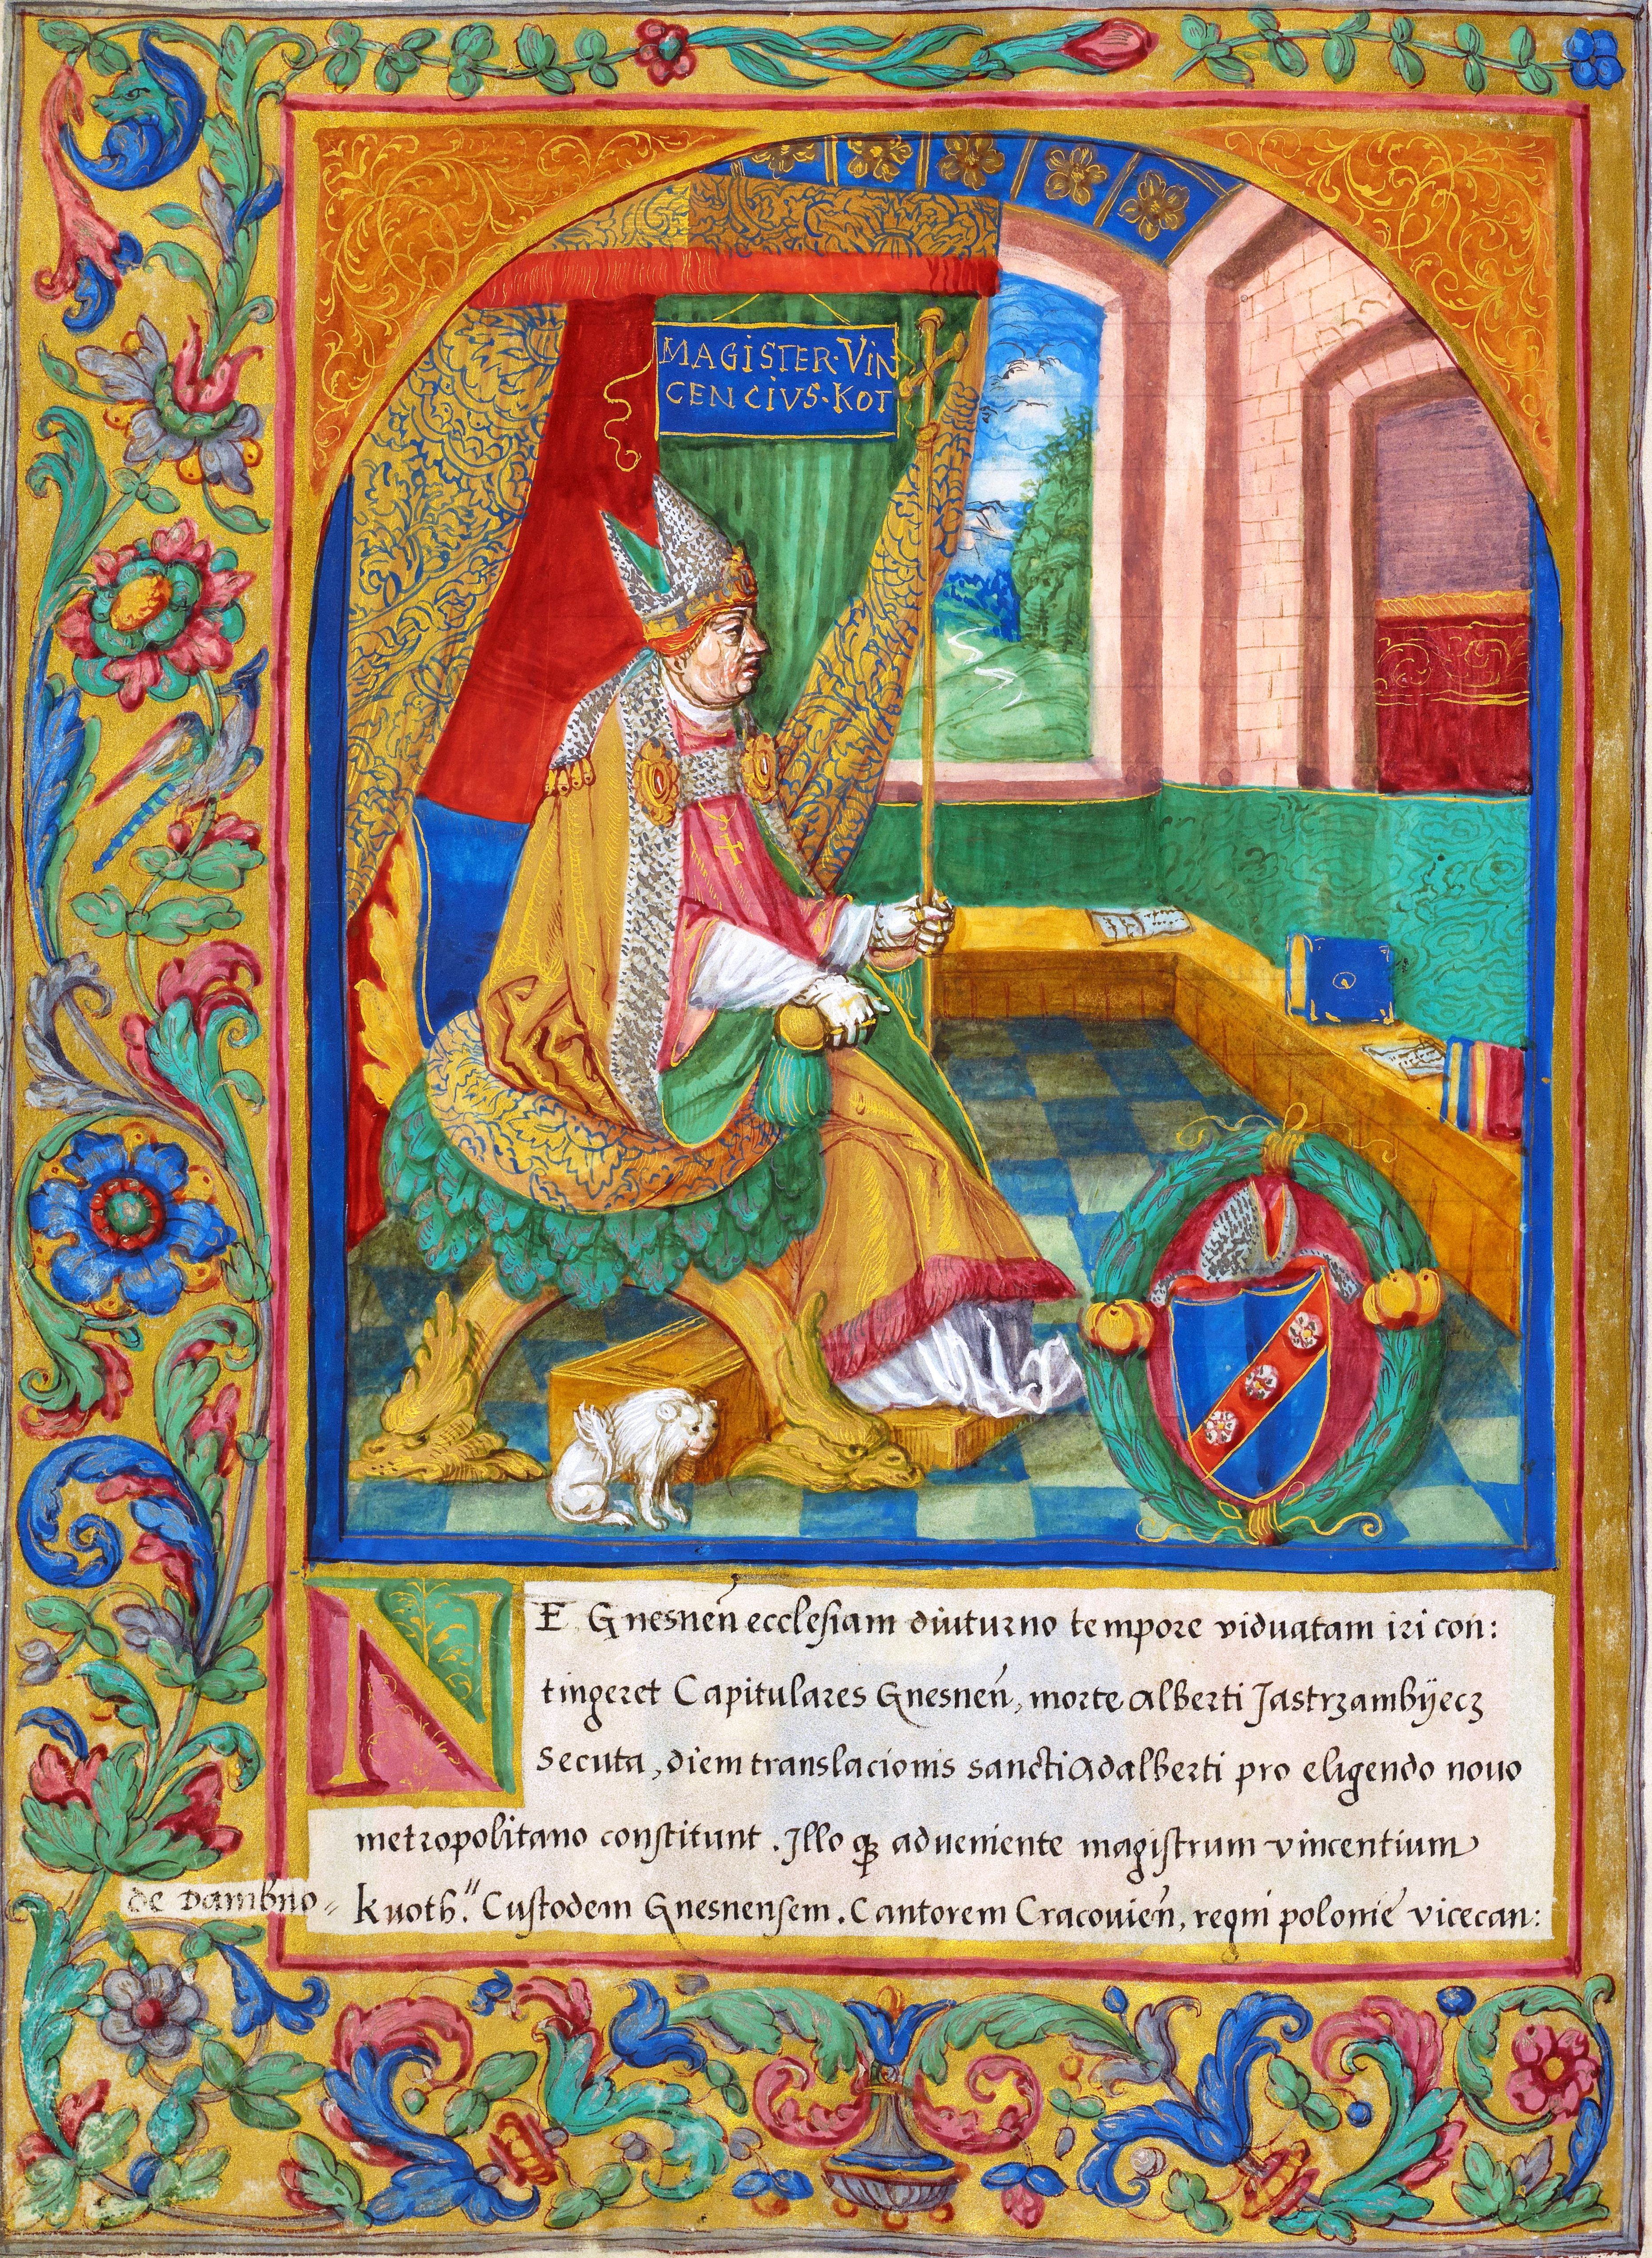 MAGISTER·VIN
CENCIVS·KOT
NE Gnesneñ ecclesiam diuturno tempore viduatam iri con:
tingeret Capitulares Gnesneñ, morte Alberti Jastrzambÿecz
secuta, diem translacionis sancti Adalberti pro eligendo nouo
metropolitano constitunt. Illo qꝫ adueniente magistrum vincentium
de Dambno⸗ kuoth." Custodem Gnesnensem. Cantorem Cracouień, regni polonie vicecan: